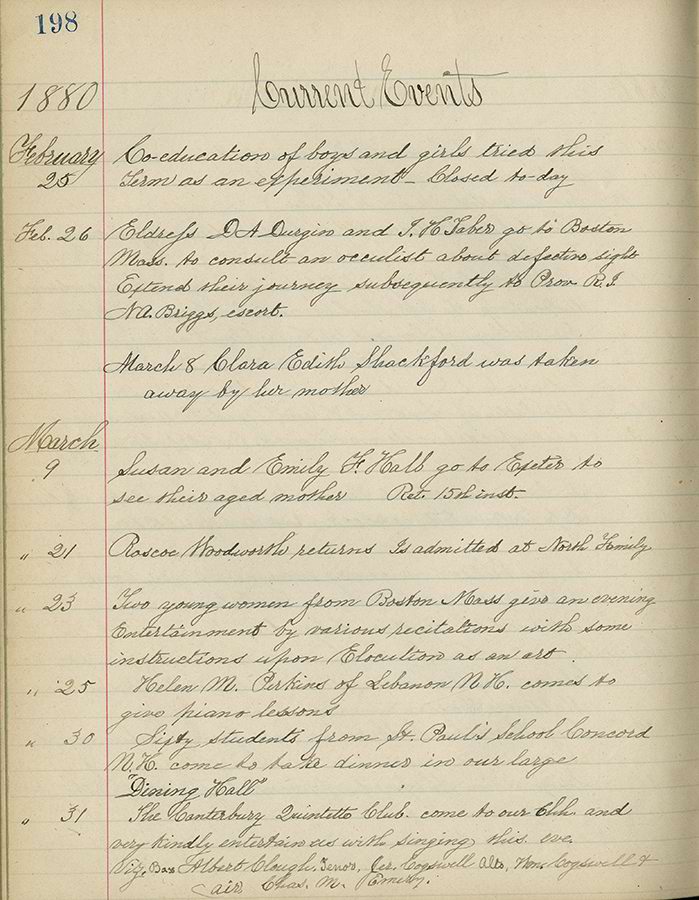 198
1880 Current Events
February Co-education of boys and girls tried this
25 Term as an experiment – Closed to-day
Feb. 26 Eldress D A Durgin and J. H Taber go to Boston
Mass. to consult an occulist about defective sight
Extend their journey subsequently to Prov. R. I.
N A. Briggs, escort.
March 8 Clara Edith Shackford was taken
away by her mother
March
9 Susan and Emily F. Hall go to Exeter to
see their aged mother Ret. 15th inst.
" 21 Roscoe Woodworth returns Is admitted at North Family
" 23 Two young women from Boston Mass give an evening
Entertainment by various recitations with some
instructions upon Elocution as an art.
" 25 Helen M. Perkins of Lebanon N. H. comes to
give piano lessons
" 30 Fifty students from St. Paul's School Concord
N. H. come to take dinner in our large
"Dining Hall"
" 31 The Canterbury Quintette Club. come to our Chh. and
very kindly entertain us with singing this eve.
Viz, Bass Albert Clough, Tenor, Jer. Cogswell Alto, Wm. Cogswell &
air Chas. M. Emery.